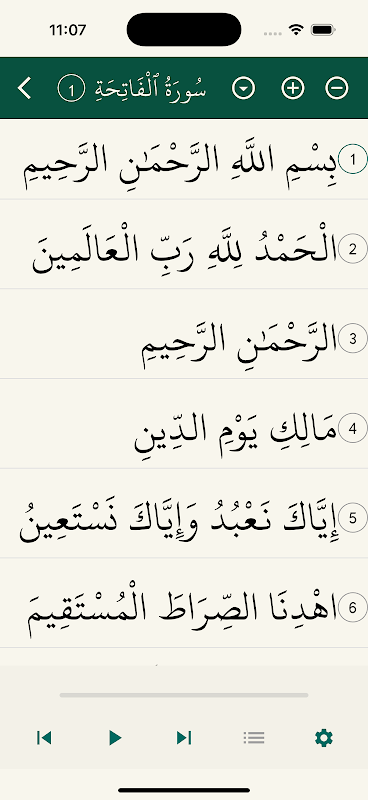 11:07
سُورَةُ ٱلْفَاتِحَةِ 1
1 بِسْمِ اللَّهِ الرَّحْمَٰنِ الرَّحِيمِ
2 الْحَمْدُ لِلَّهِ رَبِّ الْعَالَمِينَ
3 الرَّحْمَٰنِ الرَّحِيمِ
4 مَالِكِ يَوْمِ الدِّينِ
5 إِيَّاكَ نَعْبُدُ وَإِيَّاكَ نَسْتَعِينُ
6 اهْدِنَا الصِّرَاطَ الْمُسْتَقِيمَ